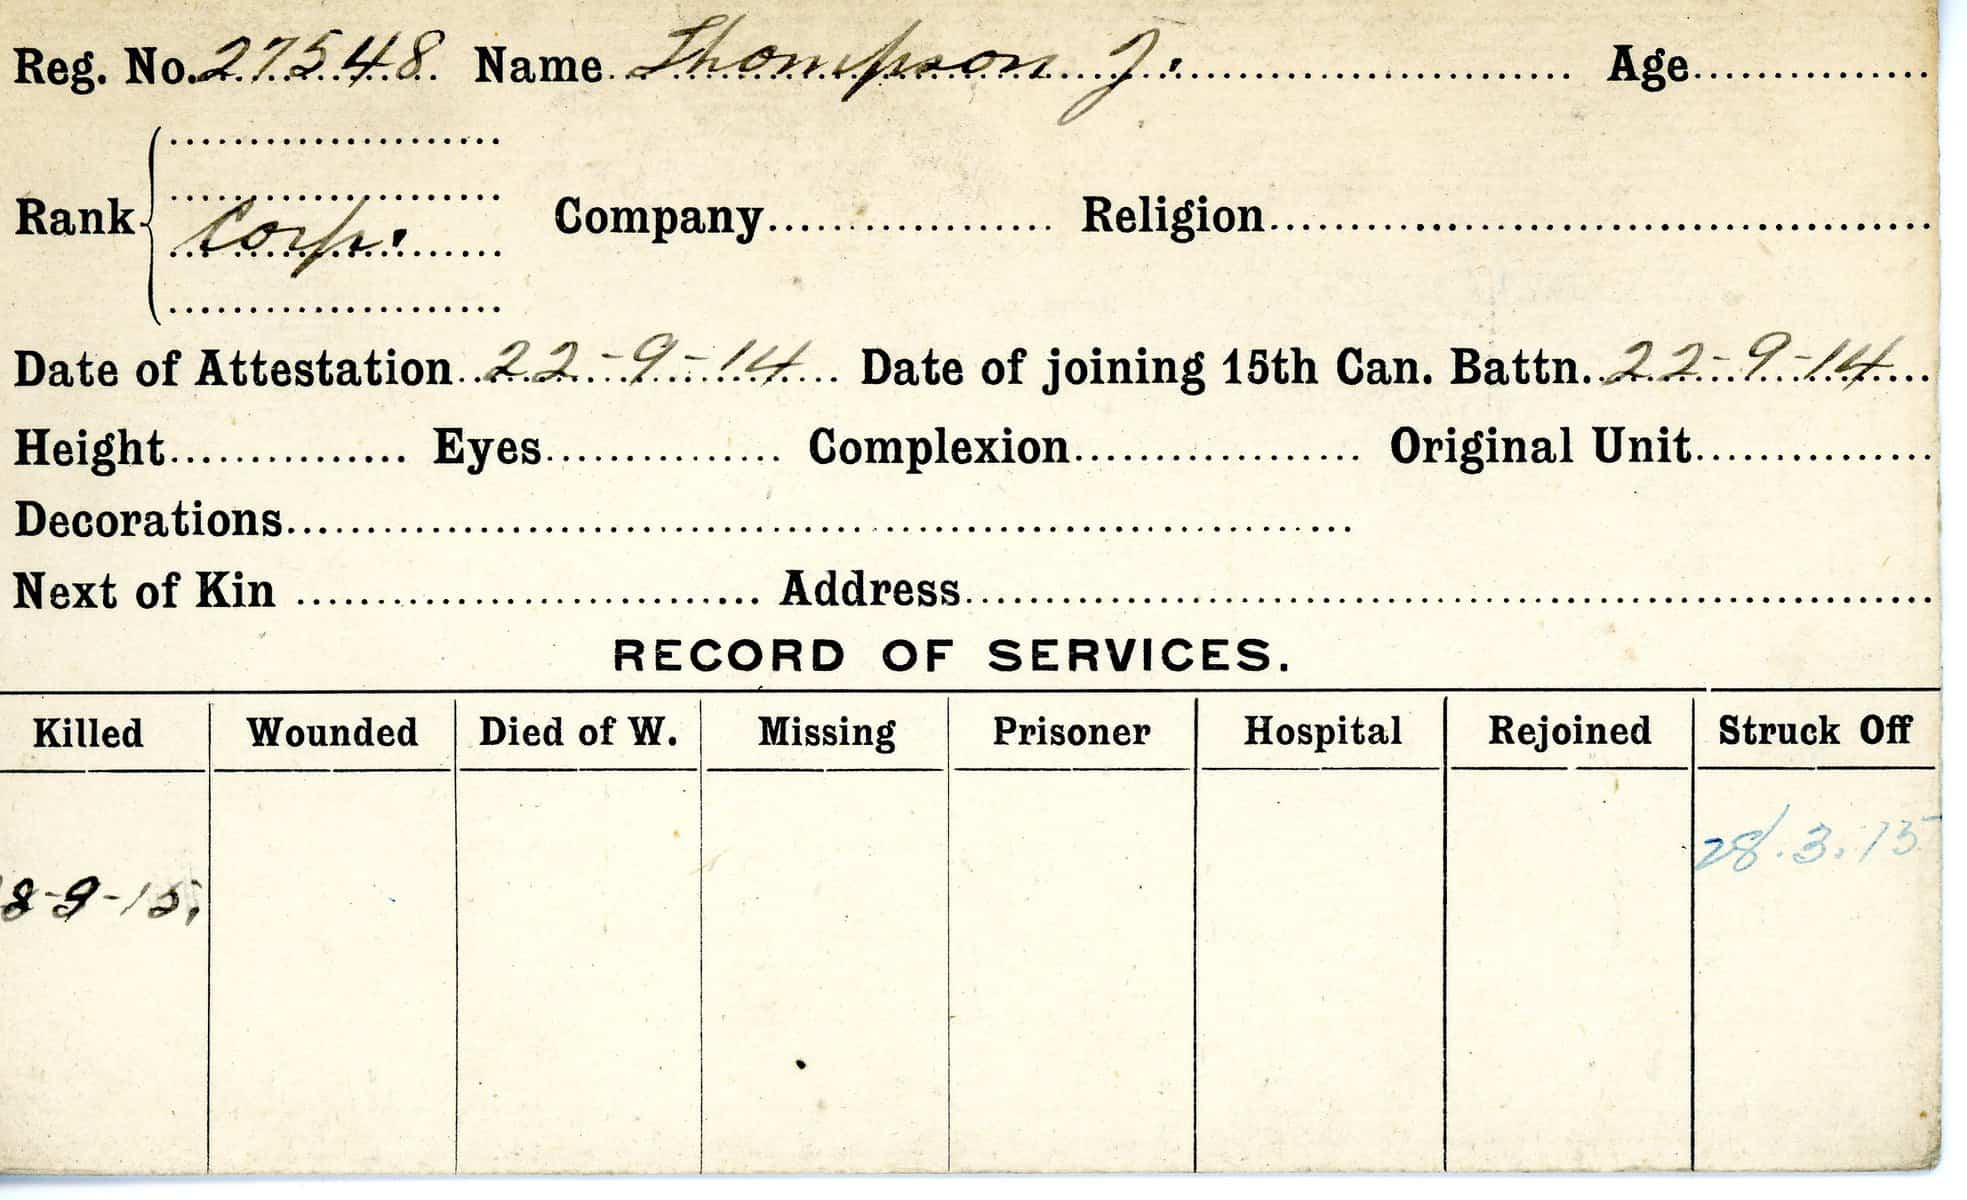 Reg. No. 27548 Name Thompson J. Age
Rank Corp. Company Religion
Date of Attestation 22-9-14 Date of joining 15th Can. Battn. 22-9-14
Height Eyes Complexion Original Unit
Decorations
Next of Kin Address
RECORD OF SERVICES.
Killed Wounded Died of W. Missing Prisoner Hospital Rejoined Struck Off
28.3.15
8-9-15.